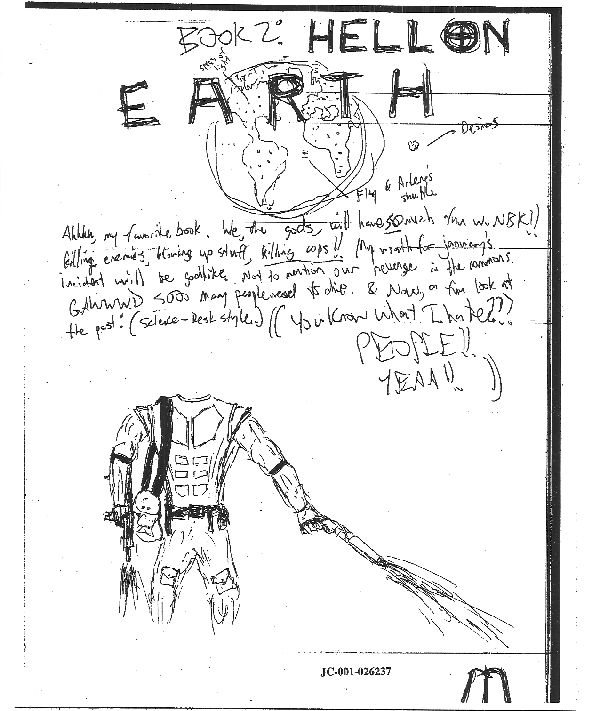 BOOK 2: HELL ON
EARTH
Deimos
Fly & Arlene's
shuttle
Ahhhh, my favorite book. We, the gods, will have so much fun w NBK!!
Killing enemies, blowing up stuff, killing cops!! My wrath for january's
incident will be godlike. Not to mention our revenge in the commons.
GAWWWD sooo many people need to die. & Now, a fun look at
the past: (Science-Desk style) (( You Know what I hate???
PEOPLE!!
YEAA!! ))
JC-001-026237
m